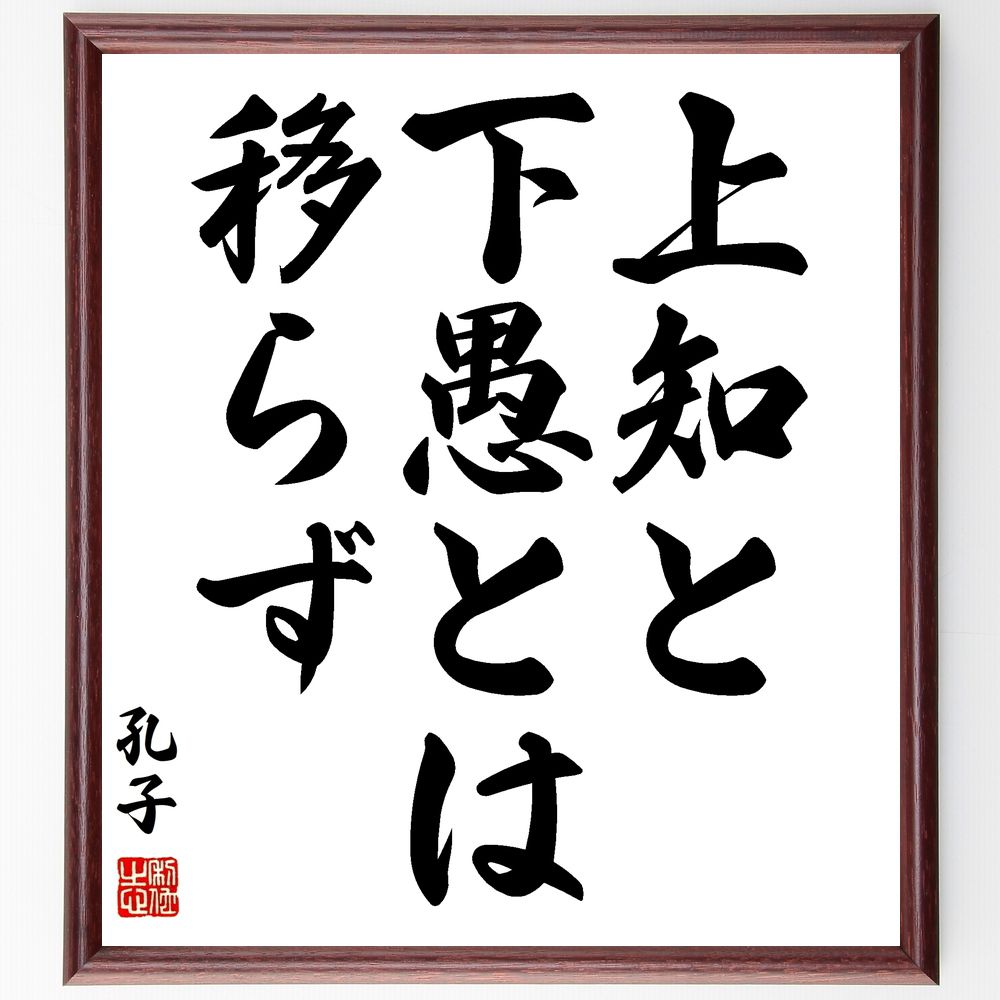 上知と
下愚とは
移らず
孔子